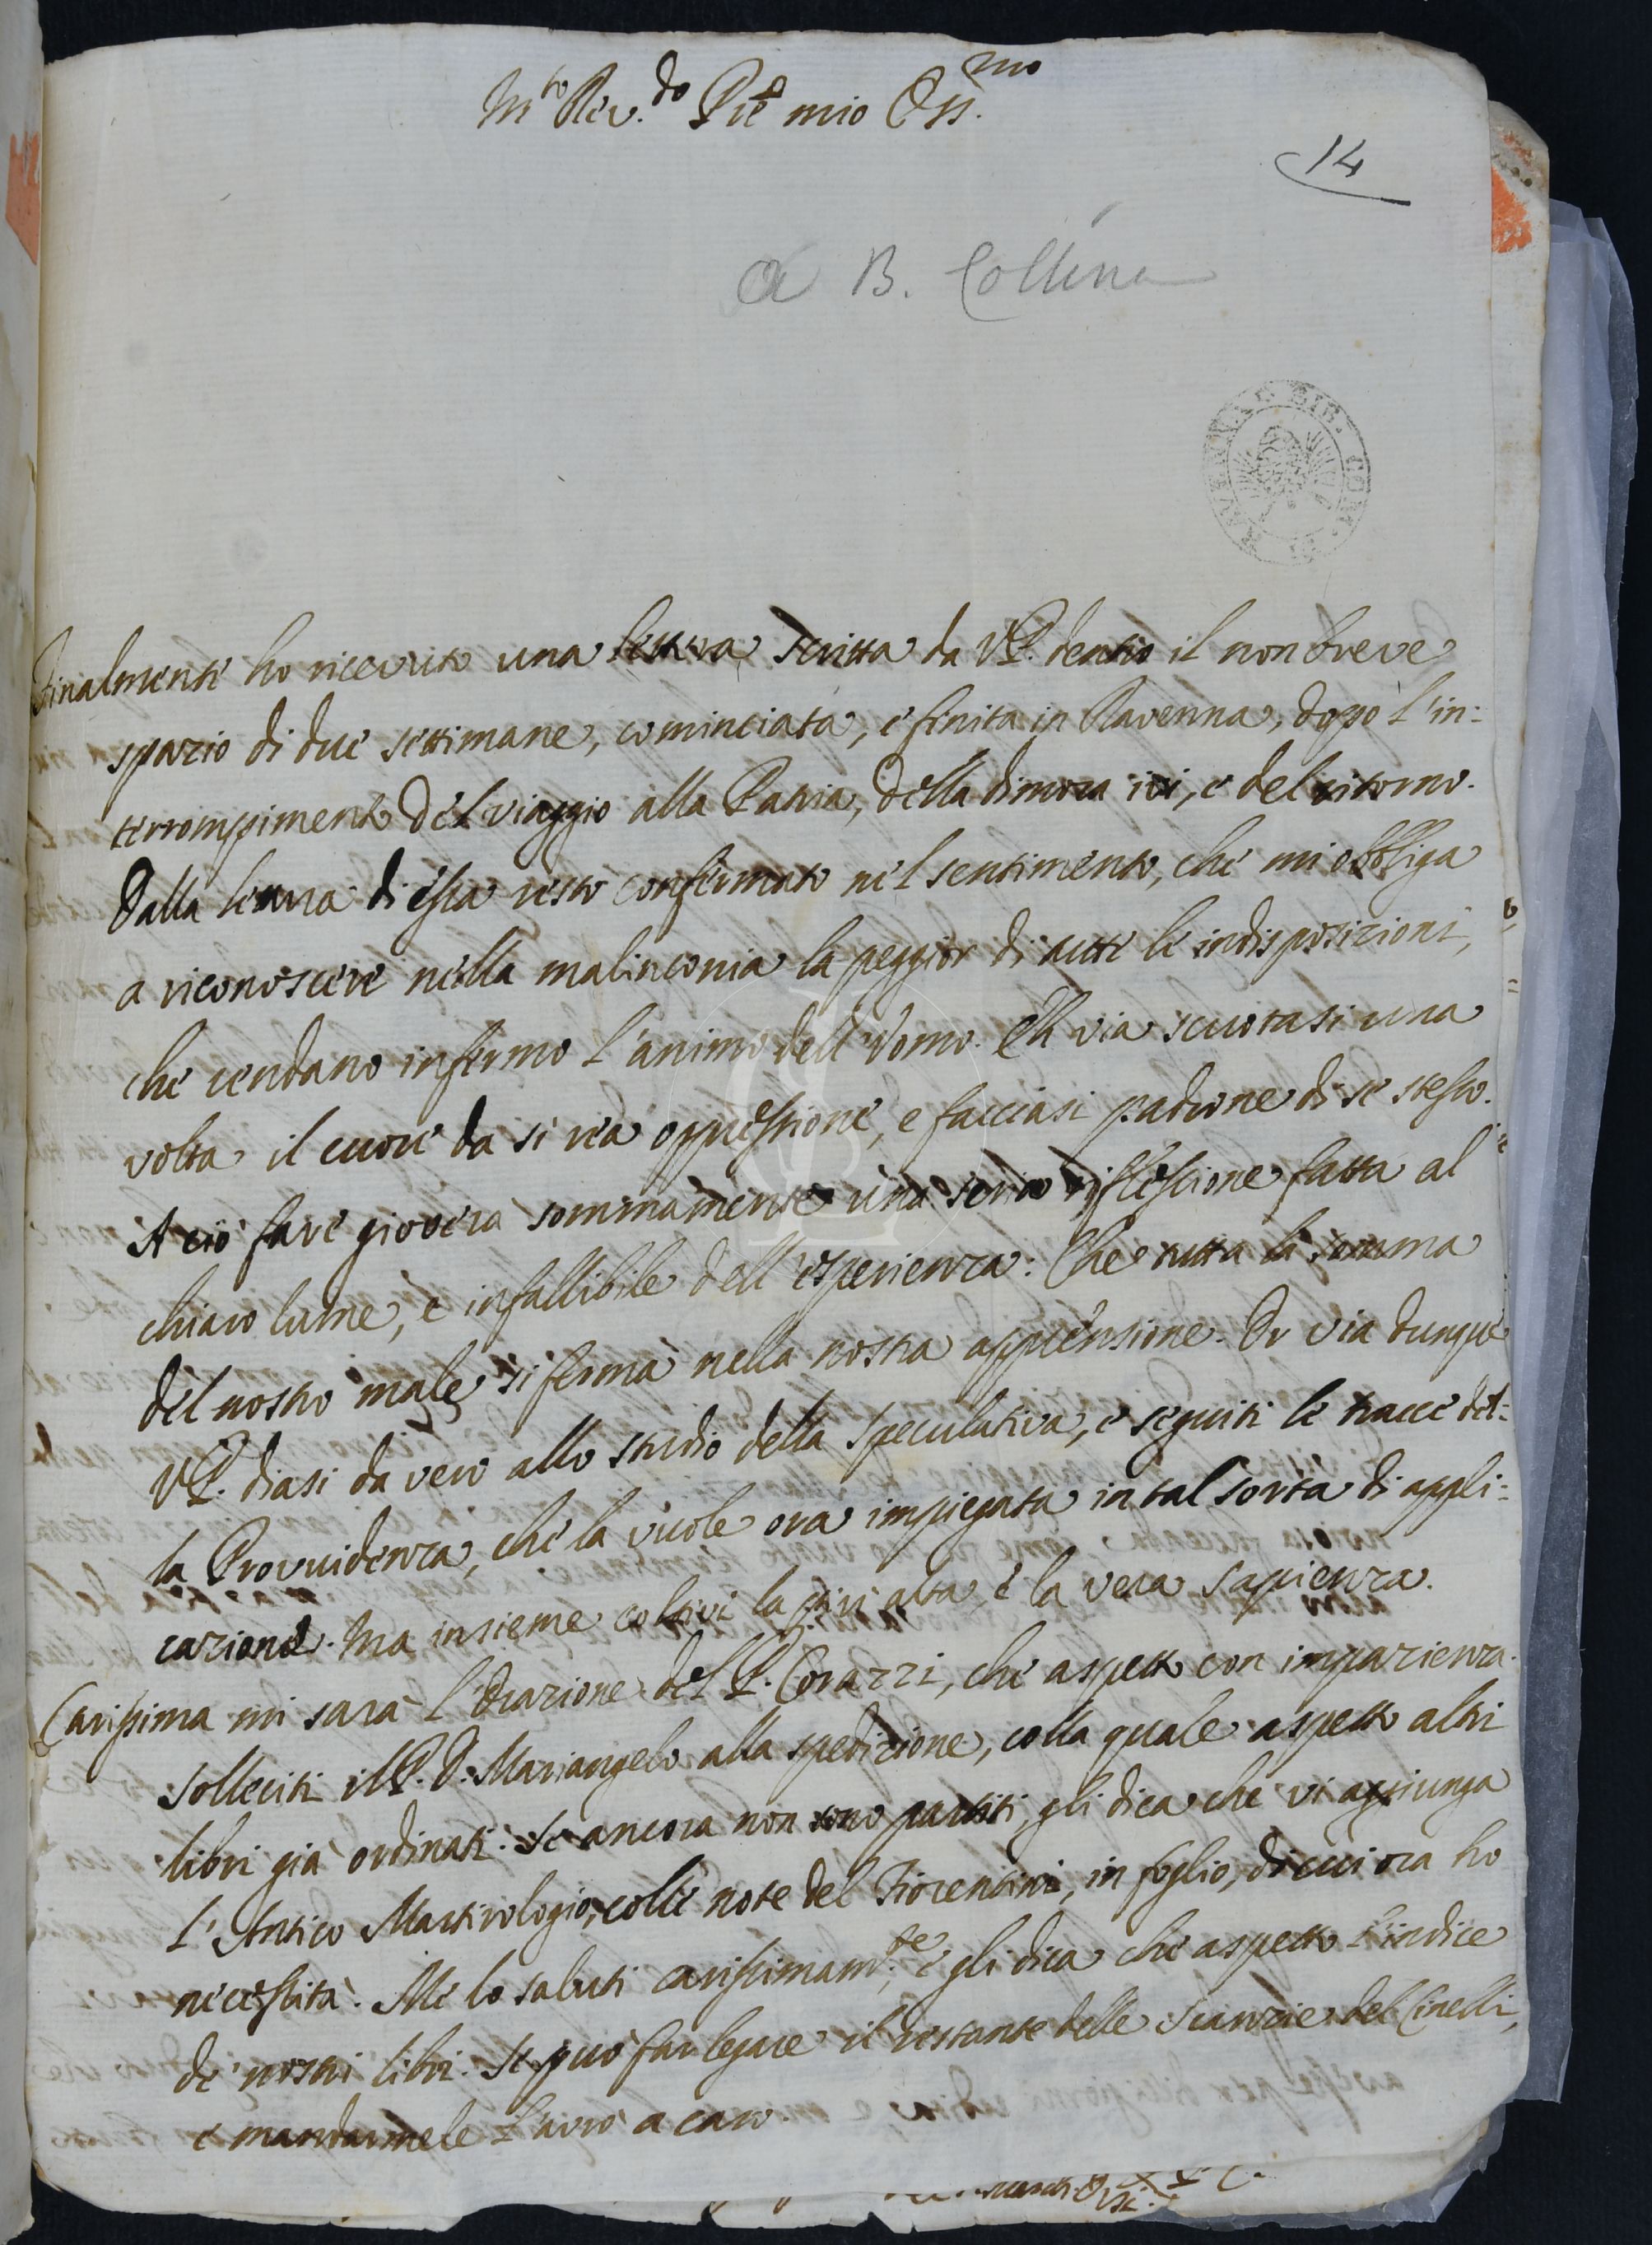 M.to Rev.do Pre mio Oss.mo
14
A B. Collina
BIB. COM.
Finalmente ho ricevuto una lettera scritta da V.P. dentro il non breve
spazio di due settimane, cominciata, e finita in Ravenna, dopo l'in:
terrompimento del viaggio alla Patria, della dimora ivi, e del ritorno.
Dalla lettura di essa resto confermato nel sentimento, che mi obbliga
a riconoscere nella malinconia la peggior di tutte le indisposizioni,
che rendano infermo l'animo dell'Uomo. Eh via scuotasi una
volta il cuore da sì rea oppressione, e facciasi padrone di se stesso.
A ciò fare gioverà sommamente una seria riflessione fatta al
chiaro lume, e infallibile dell'esperienza: Che tutta la somma
del nostro male si ferma nella nostra apprensione. Or via dunque
V.P. diasi da vero allo studio della Speculativa, e seguiti le tracce del:
la Provvidenza, che la vuole ora impiegata in tal sorta di appli:
cazione. Ma insieme coltivi la più alta, e la vera Sapienza.
Carissima mi sarà l'Orazione del P. Corazzi, che aspetto con impazienza.
Solleciti il P. D. Mariangelo alla spedizione, colla quale aspetto altri
libri già ordinati. Se ancora non sono partiti, gli dica che vi aggiunga
l'Antico Martirologio, colle note del Fiorentini, in foglio, di cui ora ho
necessità. Me lo saluti carissimam.te, e gli dica che aspetto l'indice
de' nostri libri. Se può far legare il restante delle Scanzie del Cinelli,
e mandarmele l'avrò a caro.